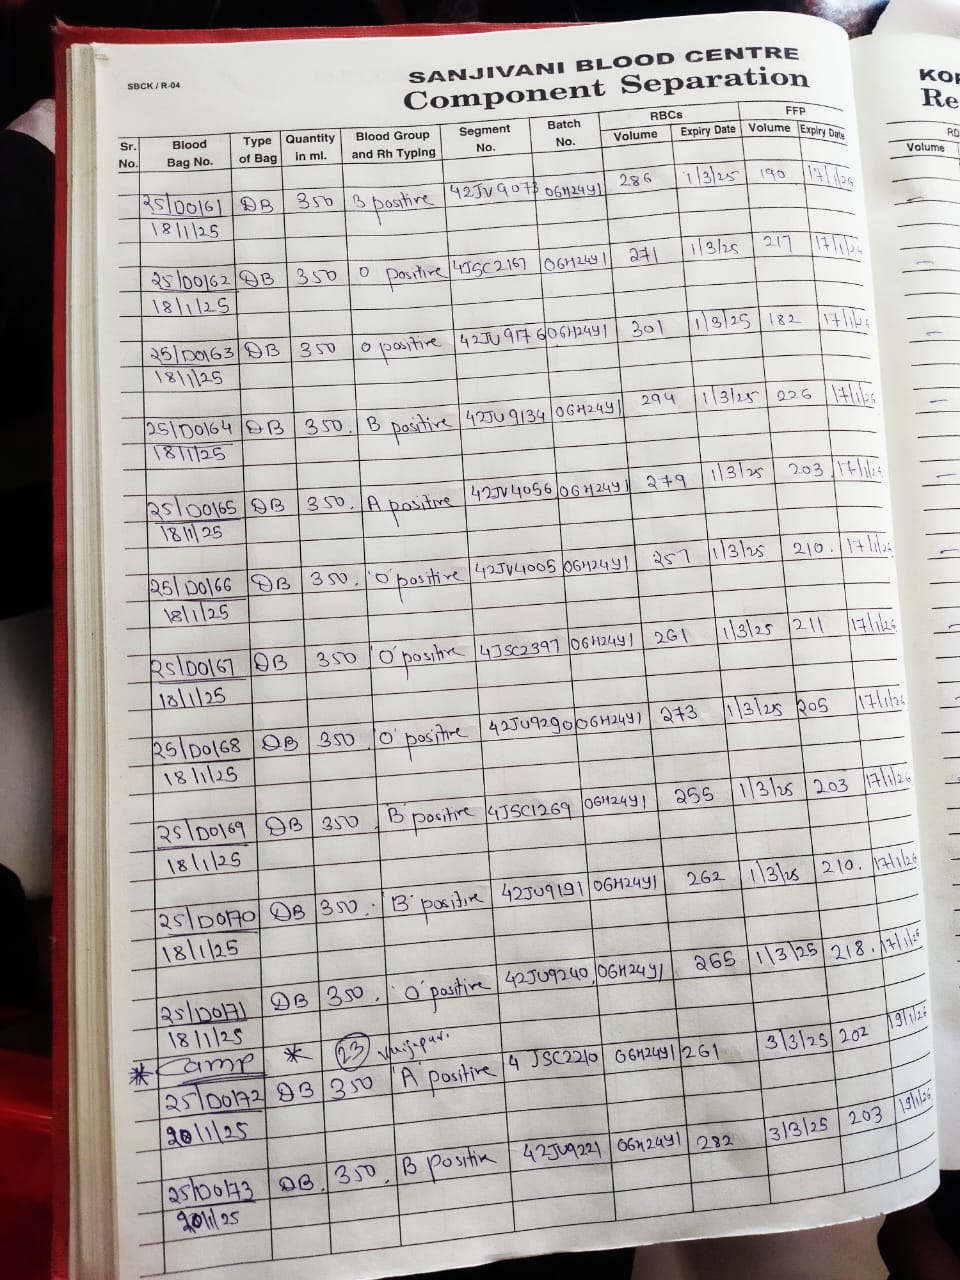 SBCK / R-04
SANJIVANI BLOOD CENTRE
Component Separation
Sr. No. Blood Bag No. Type of Bag Quantity in ml. Blood Group and Rh Typing Segment No. Batch No. RBCs Volume Expiry Date FFP Volume Expiry Date
25/D0161 DB 350 B positive 42JV9073 06H24Y1 286 1/3/25 190 17/1/26
18/1/25
25/D0162 DB 350 O positive 4JSC2167 06H24Y1 271 1/3/25 217 17/1/26
18/1/25
25/D0163 DB 350 O positive 42JU9176 06H24Y1 301 1/3/25 182 17/1/26
18/1/25
25/D0164 DB 350. B positive 42JU9134 06H24Y1 294 1/3/25 226 17/1/26
18/1/25
25/D0165 DB 350. A positive 42JV4056 06H24Y1 279 1/3/25 203 17/1/26
18/1/25
25/D0166 DB 350. 'O' positive 42JV4005 06H24Y1 257 1/3/25 210. 17/1/26
18/1/25
25/D0167 DB 350 'O' positive 4JSC2397 06H24Y1 261 1/3/25 211 17/1/26
18/1/25
25/D0168 DB 350. 'O' positive 42JU9290 06H24Y1 273 1/3/25 205 17/1/26
18/1/25
25/D0169 DB 350. 'B' positive 4JSC1269 06H24Y1 255 1/3/25 203 17/1/26
18/1/25
25/D0170 DB 350. 'B' positive 42JU9191 06H24Y1 262 1/3/25 210. 17/1/26
18/1/25
25/D0171 DB 350. 'O' positive 42JU9240 06H24Y1 265 1/3/25 218. 17/1/26
18/1/25
* Camp * 23
25/D0172 DB 350 'A' positive 4JSC2210 06H24Y1 261 3/3/25 202 19/1/26
20/1/25
25/D0173 DB. 350. B Positive 42JU9221 06H24Y1 282 3/3/25 203 19/1/26
20/1/25
KOR
Re
Volume